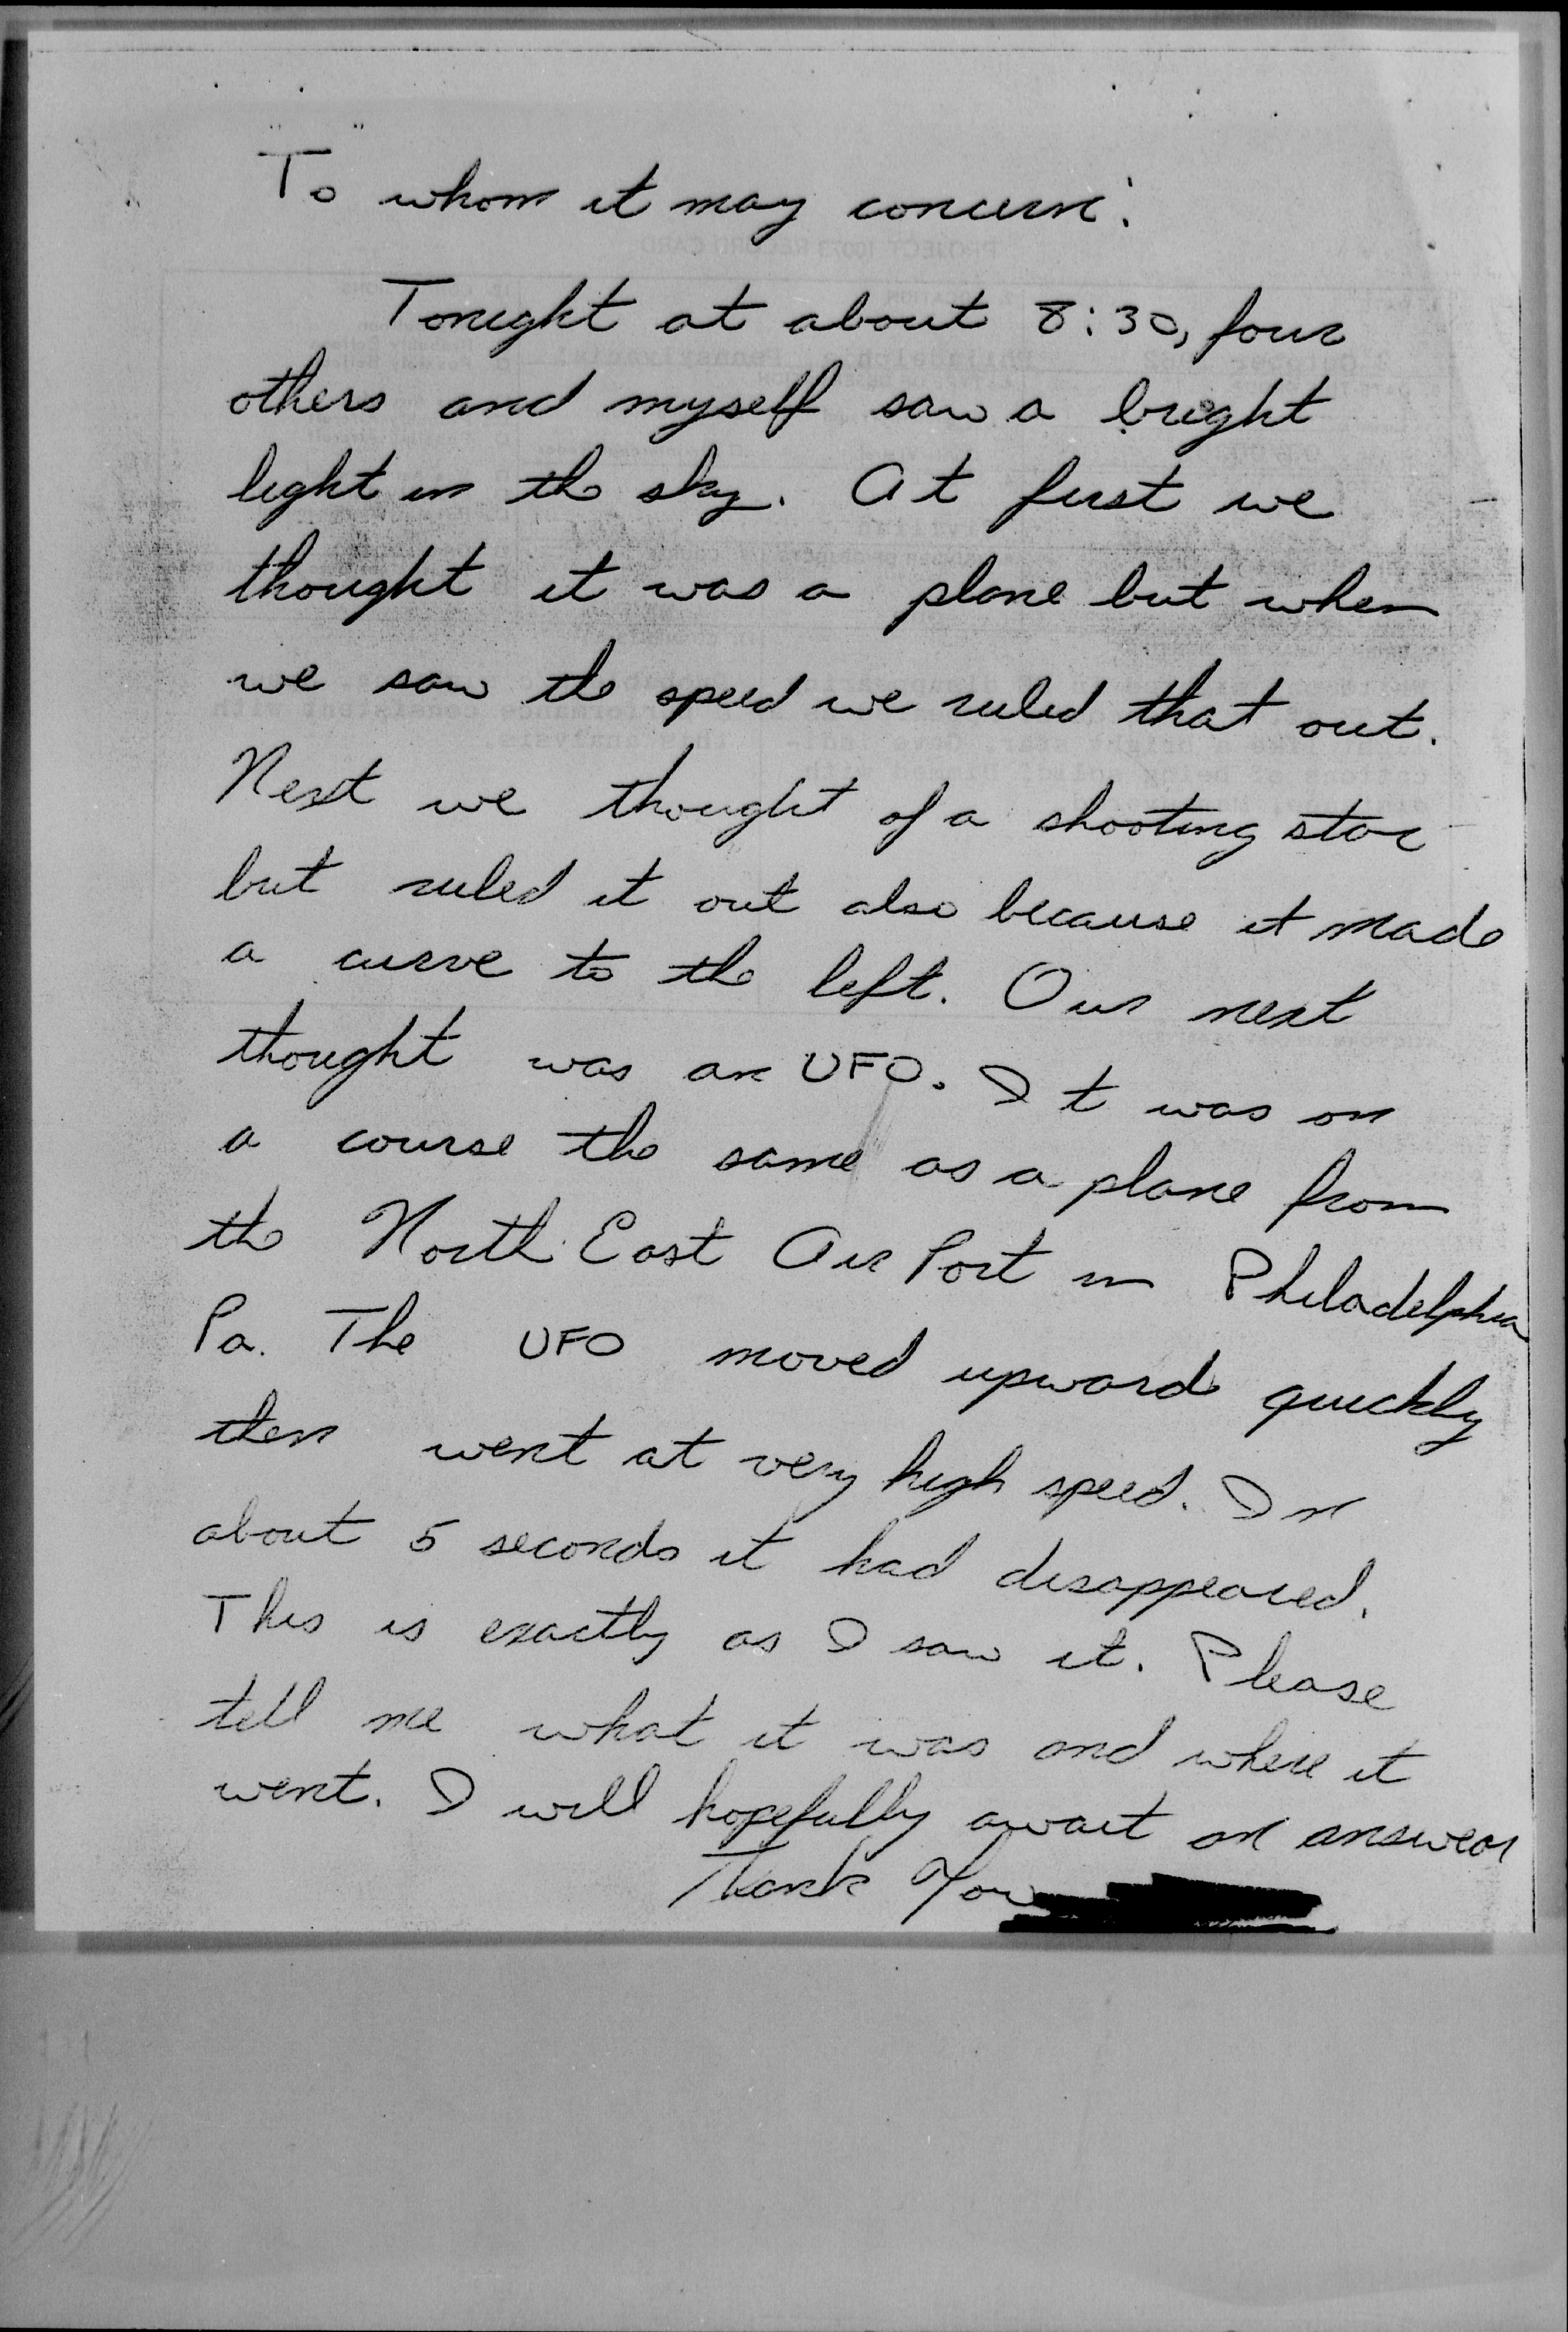 To whom it may concern:
Tonight at about 8:30, four
others and myself saw a bright
light in the sky. At first we
thought it was a plane but when
we saw the speed we ruled that out.
Next we thought of a shooting star
but ruled it out also because it made
a curve to the left. Our next
thought was an UFO. It was on
a course the same as a plane from
the North East Air Port in Philadelphia
Pa. The UFO moved upward quickly
then went at very high speed. In
about 5 seconds it had disappeared.
This is exactly as I saw it. Please
tell me what it was and where it
went. I will hopefully await an answear
Thank You